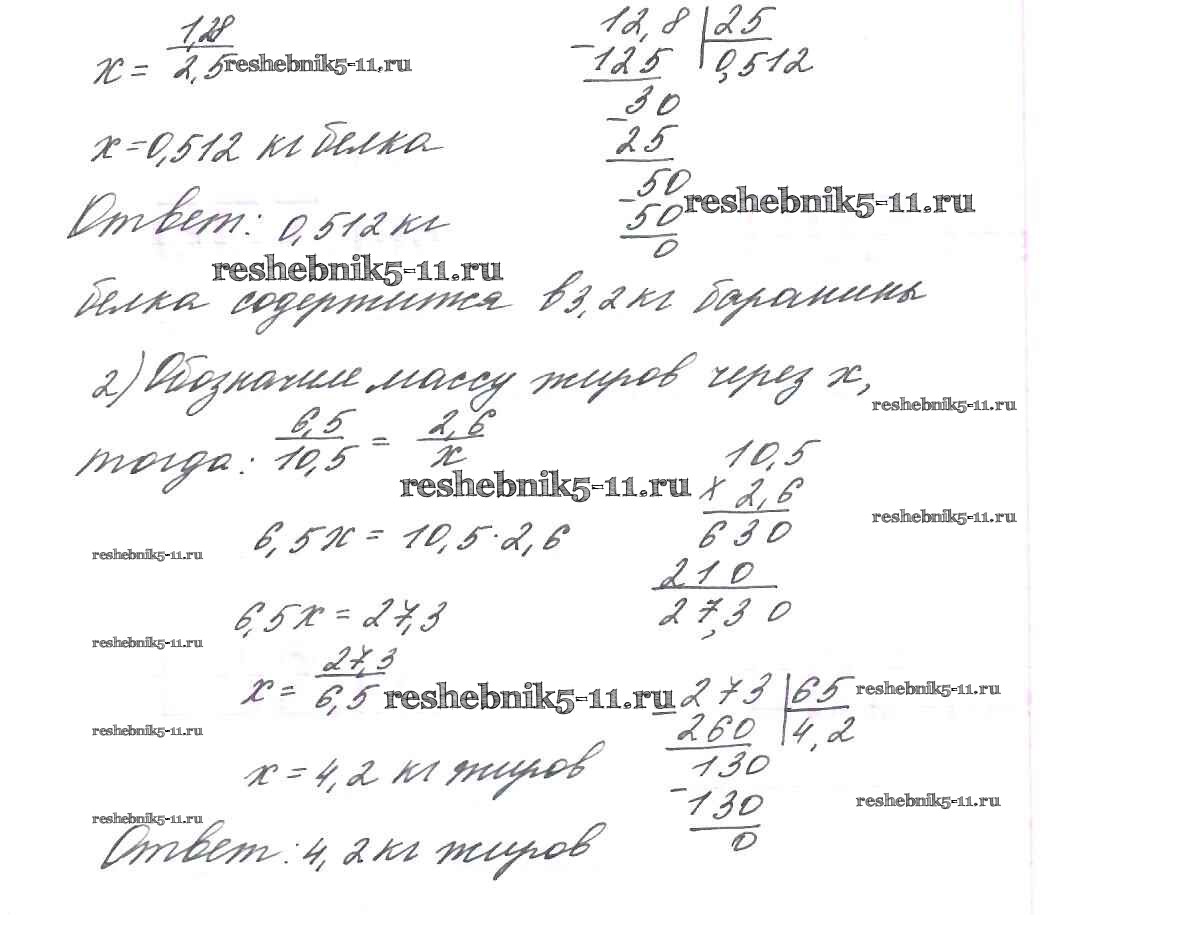 x = 1,28/2,5 reshebnik5-11.ru
12,8 | 25
- 125 | 0,512
30
- 25
50 reshebnik5-11.ru
- 50
0
x = 0,512 кг белка
Ответ: 0,512 кг
reshebnik5-11.ru
белка содержится в 3,2 кг баранины
2) Обозначие массу жиров через x,
reshebnik5-11.ru
тогда: 6,5/10,5 = 2,6/x
reshebnik5-11.ru
10,5
x 2,6
630
210
27,30
reshebnik5-11.ru
reshebnik5-11.ru
6,5x = 10,5·2,6
6,5x = 27,3
reshebnik5-11.ru
x = 27,3/6,5 reshebnik5-11.ru
- 273 | 65 reshebnik5-11.ru
260 | 4,2
130
- 130 reshebnik5-11.ru
0
reshebnik5-11.ru
x = 4,2 кг жиров
reshebnik5-11.ru
Ответ: 4,2 кг жиров